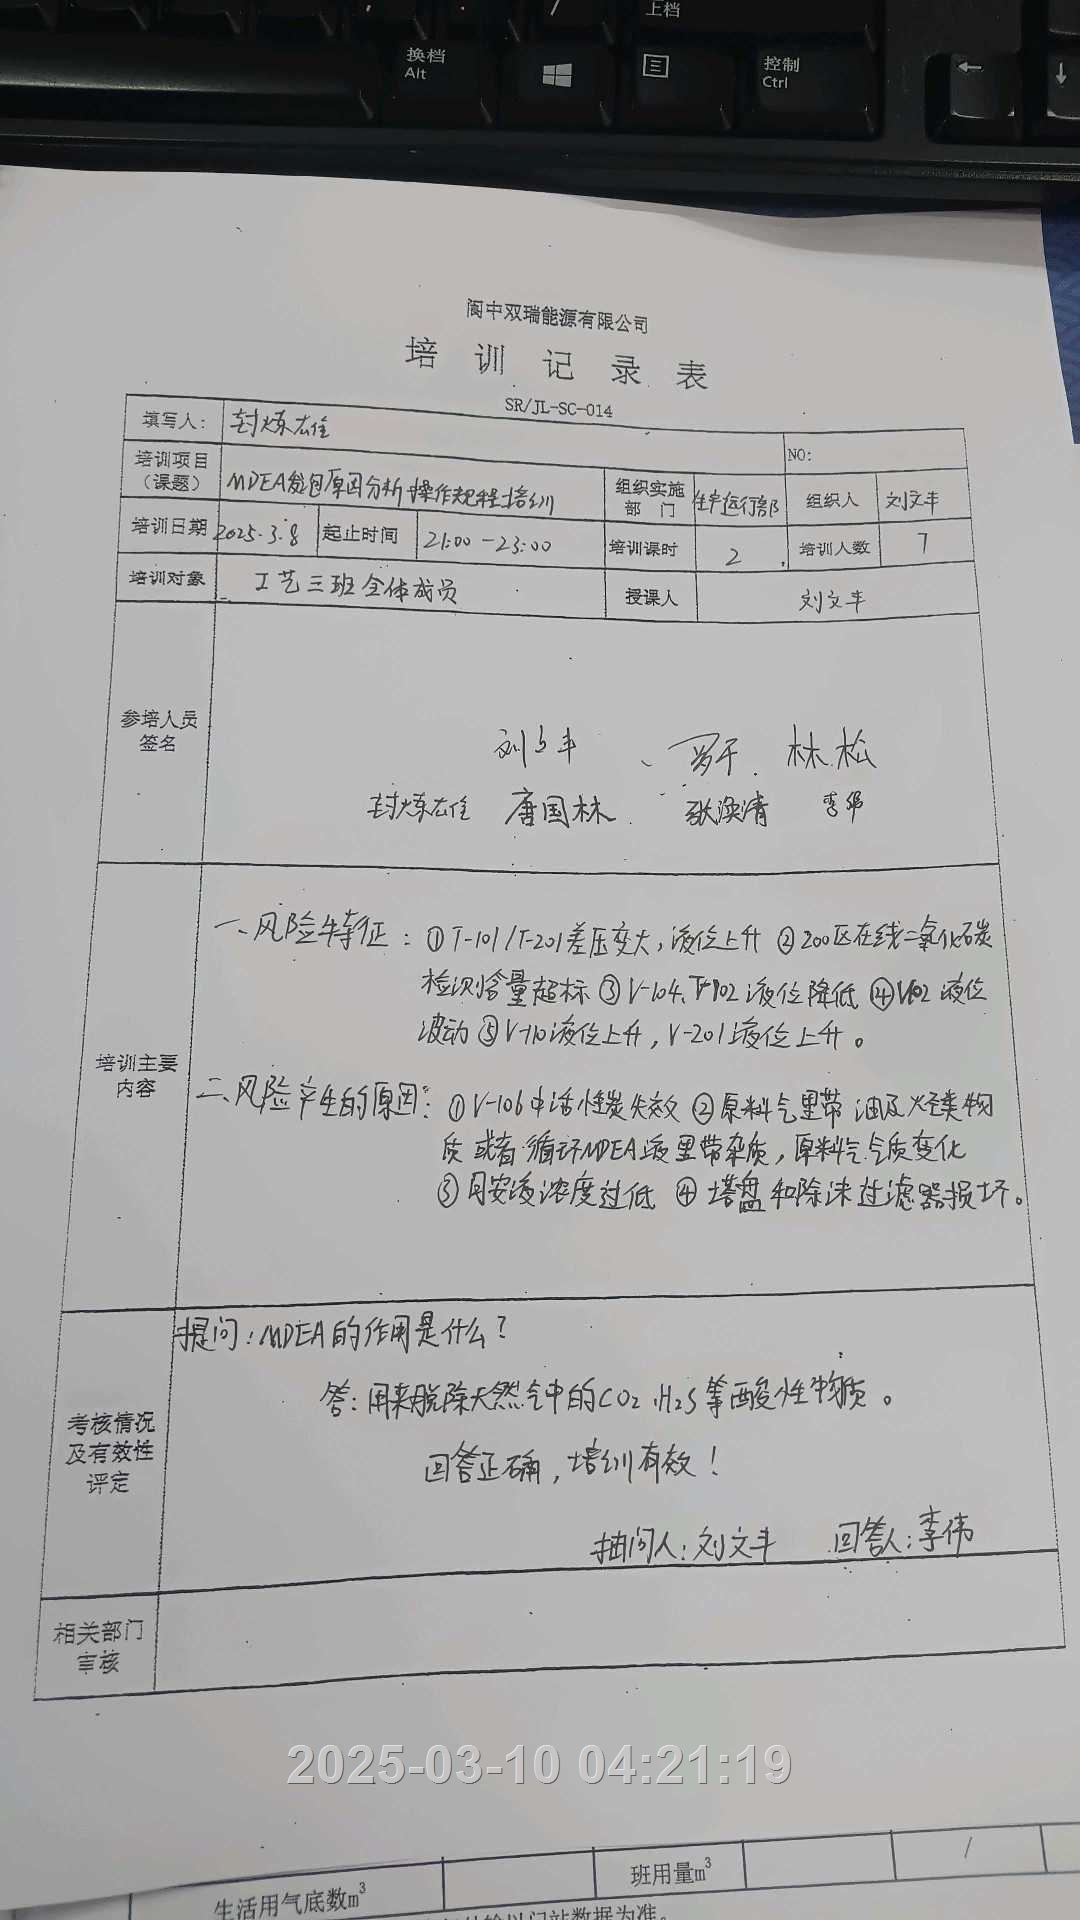 上档
换档
Alt
控制
Ctrl
阆中双瑞能源有限公司
培训记录表
SR/JL-SC-014
填写人: 封炼雄 NO:
培训项目（课题） MDEA发泡原因分析操作规程培训 组织实施部门 生产运行部 组织人 刘文丰
培训日期 2025.3.8 起止时间 21:00-23:00 培训课时 2 培训人数 7
培训对象 工艺三班全体成员 授课人 刘文丰
参培人员签名
刘文丰 罗千 林松
封炼雄 唐国林 张涣清 李伟
培训主要内容
一、风险特征：①T-101/T-201差压变大，液位上升 ②200区在线二氧化碳
检测含量超标 ③V-104、T-102液位降低 ④V102液位
波动 ⑤V-110液位上升，V-201液位上升。
二、风险产生的原因：①V-106中活性炭失效 ②原料气里带油及烃类物
质或者循环MDEA液里带杂质，原料气气质变化
③胺液浓度过低 ④塔盘和除沫过滤器损坏。
考核情况及有效性评定
提问：MDEA的作用是什么？
答：用来脱除天然气中的CO2、H2S等酸性物质。
回答正确，培训有效！
抽问人：刘文丰 回答人：李伟
相关部门审核
2025-03-10 04:21:19
生活用气底数m³ 班用量m³ /
门站数据为准。